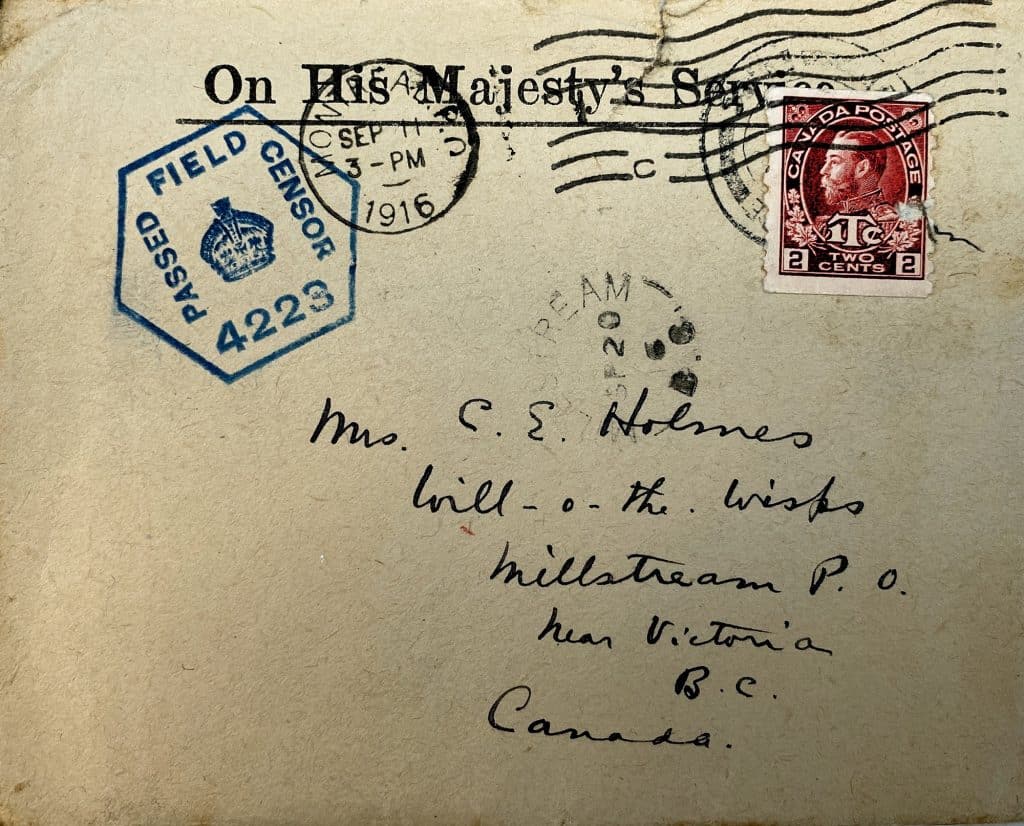 On His Majesty's Service
PASSED FIELD CENSOR
4223
MONTREAL P.Q
SEP 11
3-PM
1916
C
CANADA POSTAGE
1Tc
2 TWO CENTS 2
STREAM
SP 20
B.C.
Mrs. C. E. Holmes
Will-o-the. Wisps
Millstream P. O.
near Victoria
B.C.
Canada.